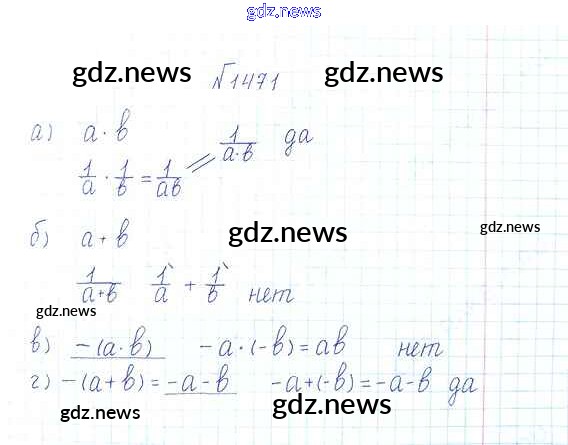 gdz.news
gdz.news №1471 gdz.news
а) a · b 1/(a·b) да
1/a · 1/b = 1/ab
б) a + b gdz.news gdz.news
1/(a+b) 1/a + 1/b нет
gdz.news
в) -(a·b) -a·(-b)=ab нет
г) -(a+b)=-a-b -a+(-b)=-a-b да
gdz.news gdz.news